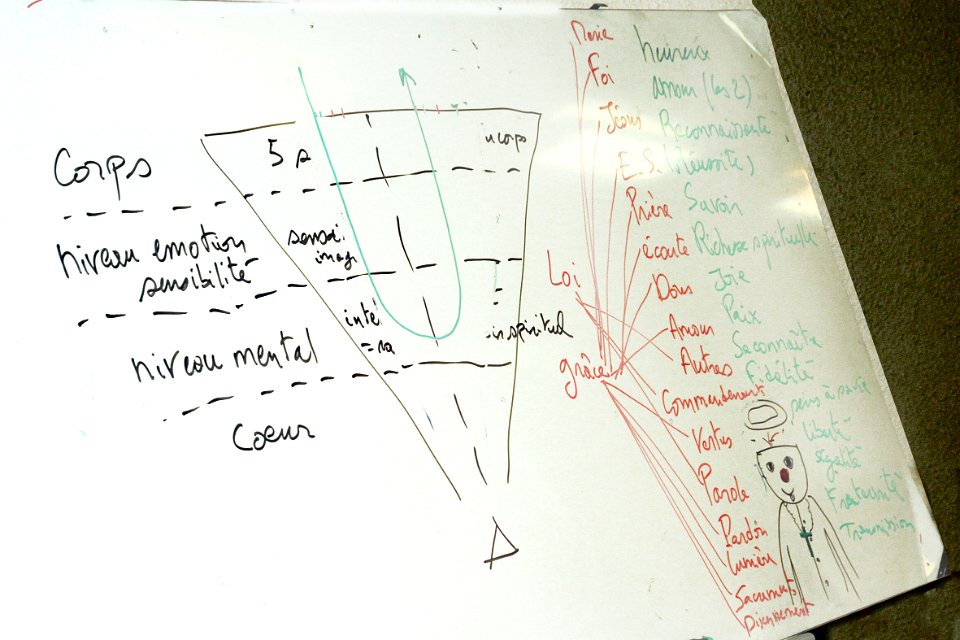 Corps
5 s
u corps
niveau emotion
sensibilité
sensi.
imag.
niveau mental
inté.
= ra
in spirituel
Coeur
Loi
grâce
Marie
Foi
Jésus
E.S.
Prière
écoute
Dons
Amour
Autres
Commandements
Vertus
Parole
Pardon
Lumière
Sacrements
Discernement
heureux
amour (les 2)
Reconnaissante
(Réussites)
Savoir
Richesse spirituelle
Joie
Paix
Se connaître
Fidélité
liberté
égalité
Fraternité
Transmission